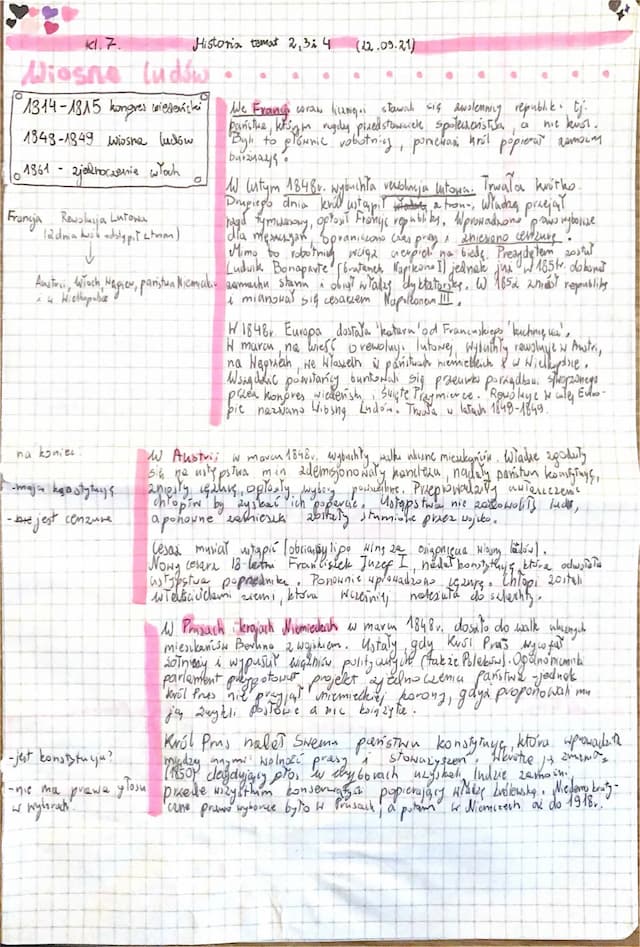 kl. 7.
Historia temat 2, 3 i 4 (22.09.21)
Wiosna ludów
1814-1815 kongres wiedeński
1848-1849 wiosna ludów
1861 - zjednoczenie włoch
Francja Rewolucja Lutowa
(2 dnia król odstąpił z tronu)
Austri, Włoch, Węgier, państwa Niemiec
i w Wielkopolsce
We Francji coraz liczniejsi stawali się zwolennicy republiki tj.
państwa, którym rządzą przedstawiciele społeczeństwa, a nie król.
Byli to głównie robotnicy, ponieważ król popierał zamożną
burżuazję.
W lutym 1848r. wybuchła rewolucja lutowa. Trwała krótko.
Drugiego dnia król ustąpił z tronu, władzę przejął
rząd tymczasowy, ogłosił Francję republiką. Wprowadzono prawo wyborcze
dla mężczyzn, ograniczono czas pracy i zniesiono cenzurę.
Mimo to robotnicy wciąż cierpieli na biedę. Prezydentem został
Ludwik Bonaparte (bratanek Napoleona I) jednak już w 1851r. dokonał
zamachu stanu i objął władzę dyktatorską. W 1852 zniósł republikę
i mianował się cesarzem Napoleonem III.
W 1848r. Europa dostała 'kataru' od Francuskiego 'kichnięcia'.
W marcu na wieść o rewolucji lutowej, wybuchły rewolucje w Austrii,
na Węgrzech, we Włoszech i w państwach niemieckich i w Wielkopolsce.
Wszędzie powstańcy buntowali się przeciwko porządkowi stworzonego
przez kongres wiedeński i Święte Przymierze. Rewolucje w całej Euro-
pie nazwano Wiosną Ludów. Trwała w latach 1848-1849.
na koniec:
-mają konstytucję
- jest cenzura
W Austrii w marcu 1848r. wybuchły walki uliczne mieszkańców. Władze zgodziły
się na ustępstwa m.in. zdemisjonowały kanclerza, nadały państwu konstytucję,
zniosły cenzurę, ogłosiły wybory powszechne. Przeprowadziły uwłaszczenie
chłopów by zyskać ich poparcie. Ustępstwa nie zadowoliły ludu,
a ponowne zamieszki zostały stłumione przez wojsko.
Cesarz musiał ustąpić (obciążyli go winą za osiągnięcia wiosny ludów).
Nowy cesarz 18-letni Franciszek Józef I, nadał konstytucję która odwołała
ustępstwa poprzednika. Ponownie wprowadzono cenzurę. Chłopi zostali
właścicielami ziemi, która wcześniej należała do szlachty.
W Prusach i krajach Niemieckich w marcu 1848r. doszło do walk ulicznych
mieszkańców Berlina z wojskiem. Ustały, gdy Król Prus wycofał
żołnierzy i wypuścił więźniów politycznych (także Polaków). Ogólnoniemiecki
parlament przygotował projekt zjednoczenia państwa - jednak
król Prus nie przyjął niemieckiej korony, gdyż proponowali mu
ją zwykli posłowie a nie książęta.
-jest konstytucja?
-nie ma prawa głosu
w wyborach
Król Prus nadał swemu państwu konstytucję, która wprowadziła
między innymi wolność prasy i stowarzyszeń. Wkrótce ją zmieniono
(1850) decydujący głos w wyborach uzyskali ludzie zamożni.
przede wszystkim konserwatyści popierający władzę królewską. Niedemokraty-
czne prawo wyborcze było w Prusach, a potem w Niemczech aż do 1918r.